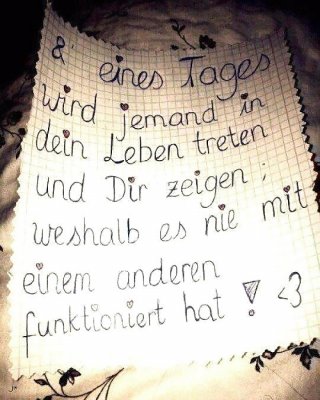 & eines Tages
wird jemand in
dein Leben treten
und Dir zeigen ;
weshalb es nie mit
einem anderen
funktioniert hat ! <3